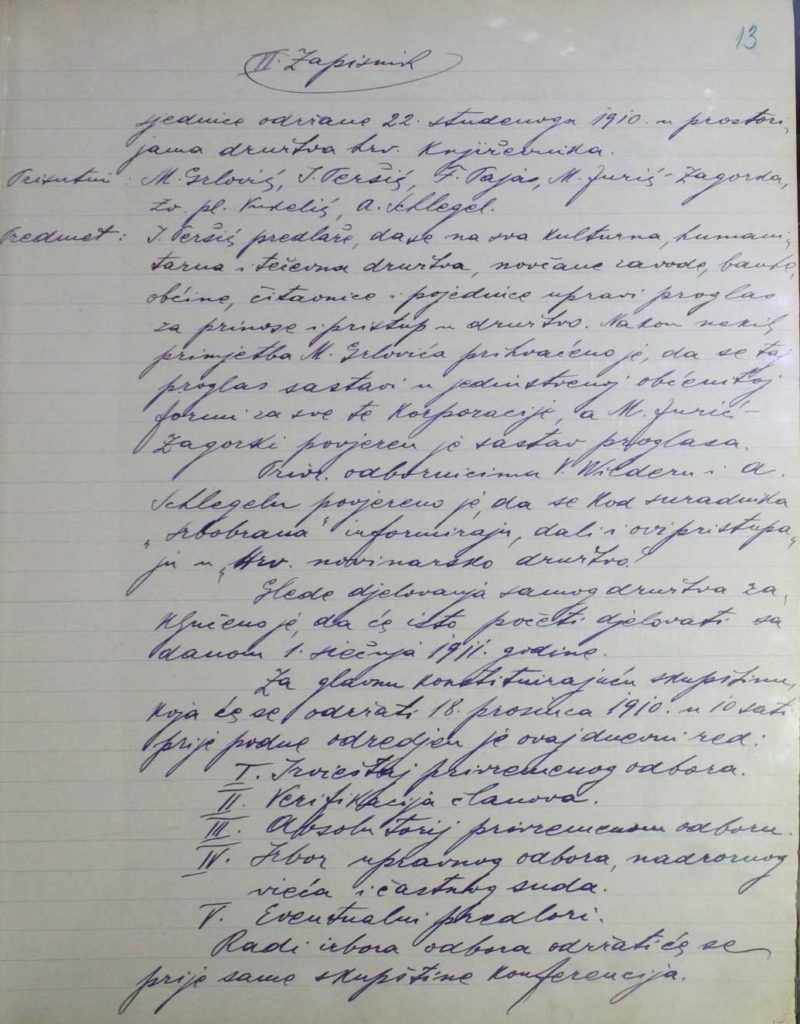 13
II. Zapisnik
sjednice održane 22. studenoga 1910. u prostori„
jama društva hrv. književnika.
Prisutni: M. Grlović, I. Peršić, F. Pajas, M. Jurić-Zagorka,
Zv. pl. Kukelić, A. Schlegel.
Predmet: I. Peršić predlaže, da se na sva kulturna, humani„
tarna i tečevna društva, novčane zavode, banke,
občine, čitaonice i pojedince upravi proglas
za prinose i pristup u društvo. Nakon nekih
primjetba M. Grlovića prihvaćeno je, da se taj
proglas sastavi u jedinstvenoj občenitoj
formi za sve te korporacije, a M. Jurić-
Zagorki povjeren je sastav proglasa.
Priv. odbornicima V. Wilderu i A.
Schlegelu povjereno je, da se kod suradnika
„Srbobrana" informiraju, dali i ovi pristupa„
ju u „Hrv. novinarsko društvo."
Glede djelovanja samog društva za„
ključeno je, da će isto početi djelovati sa
danom 1. siečnja 1911. godine.
Za glavnu konstituirajuću skupštinu,
koja će se održati 18. prosinca 1910. u 10 sati
prije podne odredjen je ovaj dnevni red:
I. Izvještaj privremenog odbora.
II. Verifikacija članova.
III. Absolutorij privremenom odboru.
IV. Izbor upravnog odbora, nadzornog
vieća i častnog suda.
V. Eventualni predlozi.
Radi izbora odbora održati će se
prije same skupštine konferencija.